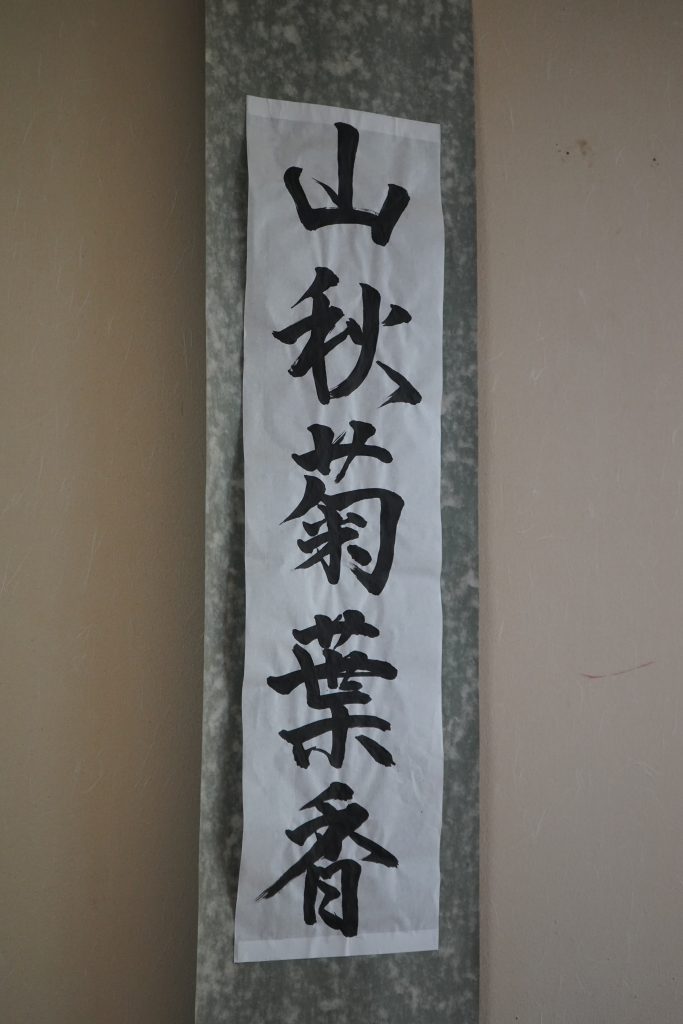 山秋菊葉香